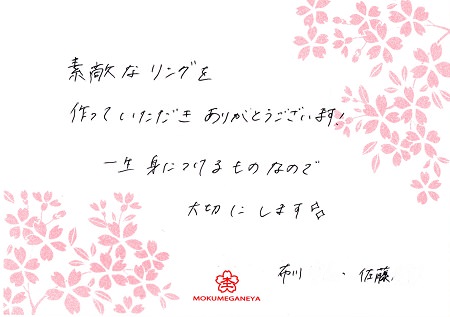 素敵なリングを
作っていただき ありがとうございます!
一生 身につけるものなので
大切にします
布川 ・ 佐藤
MOKUMEGANEYA